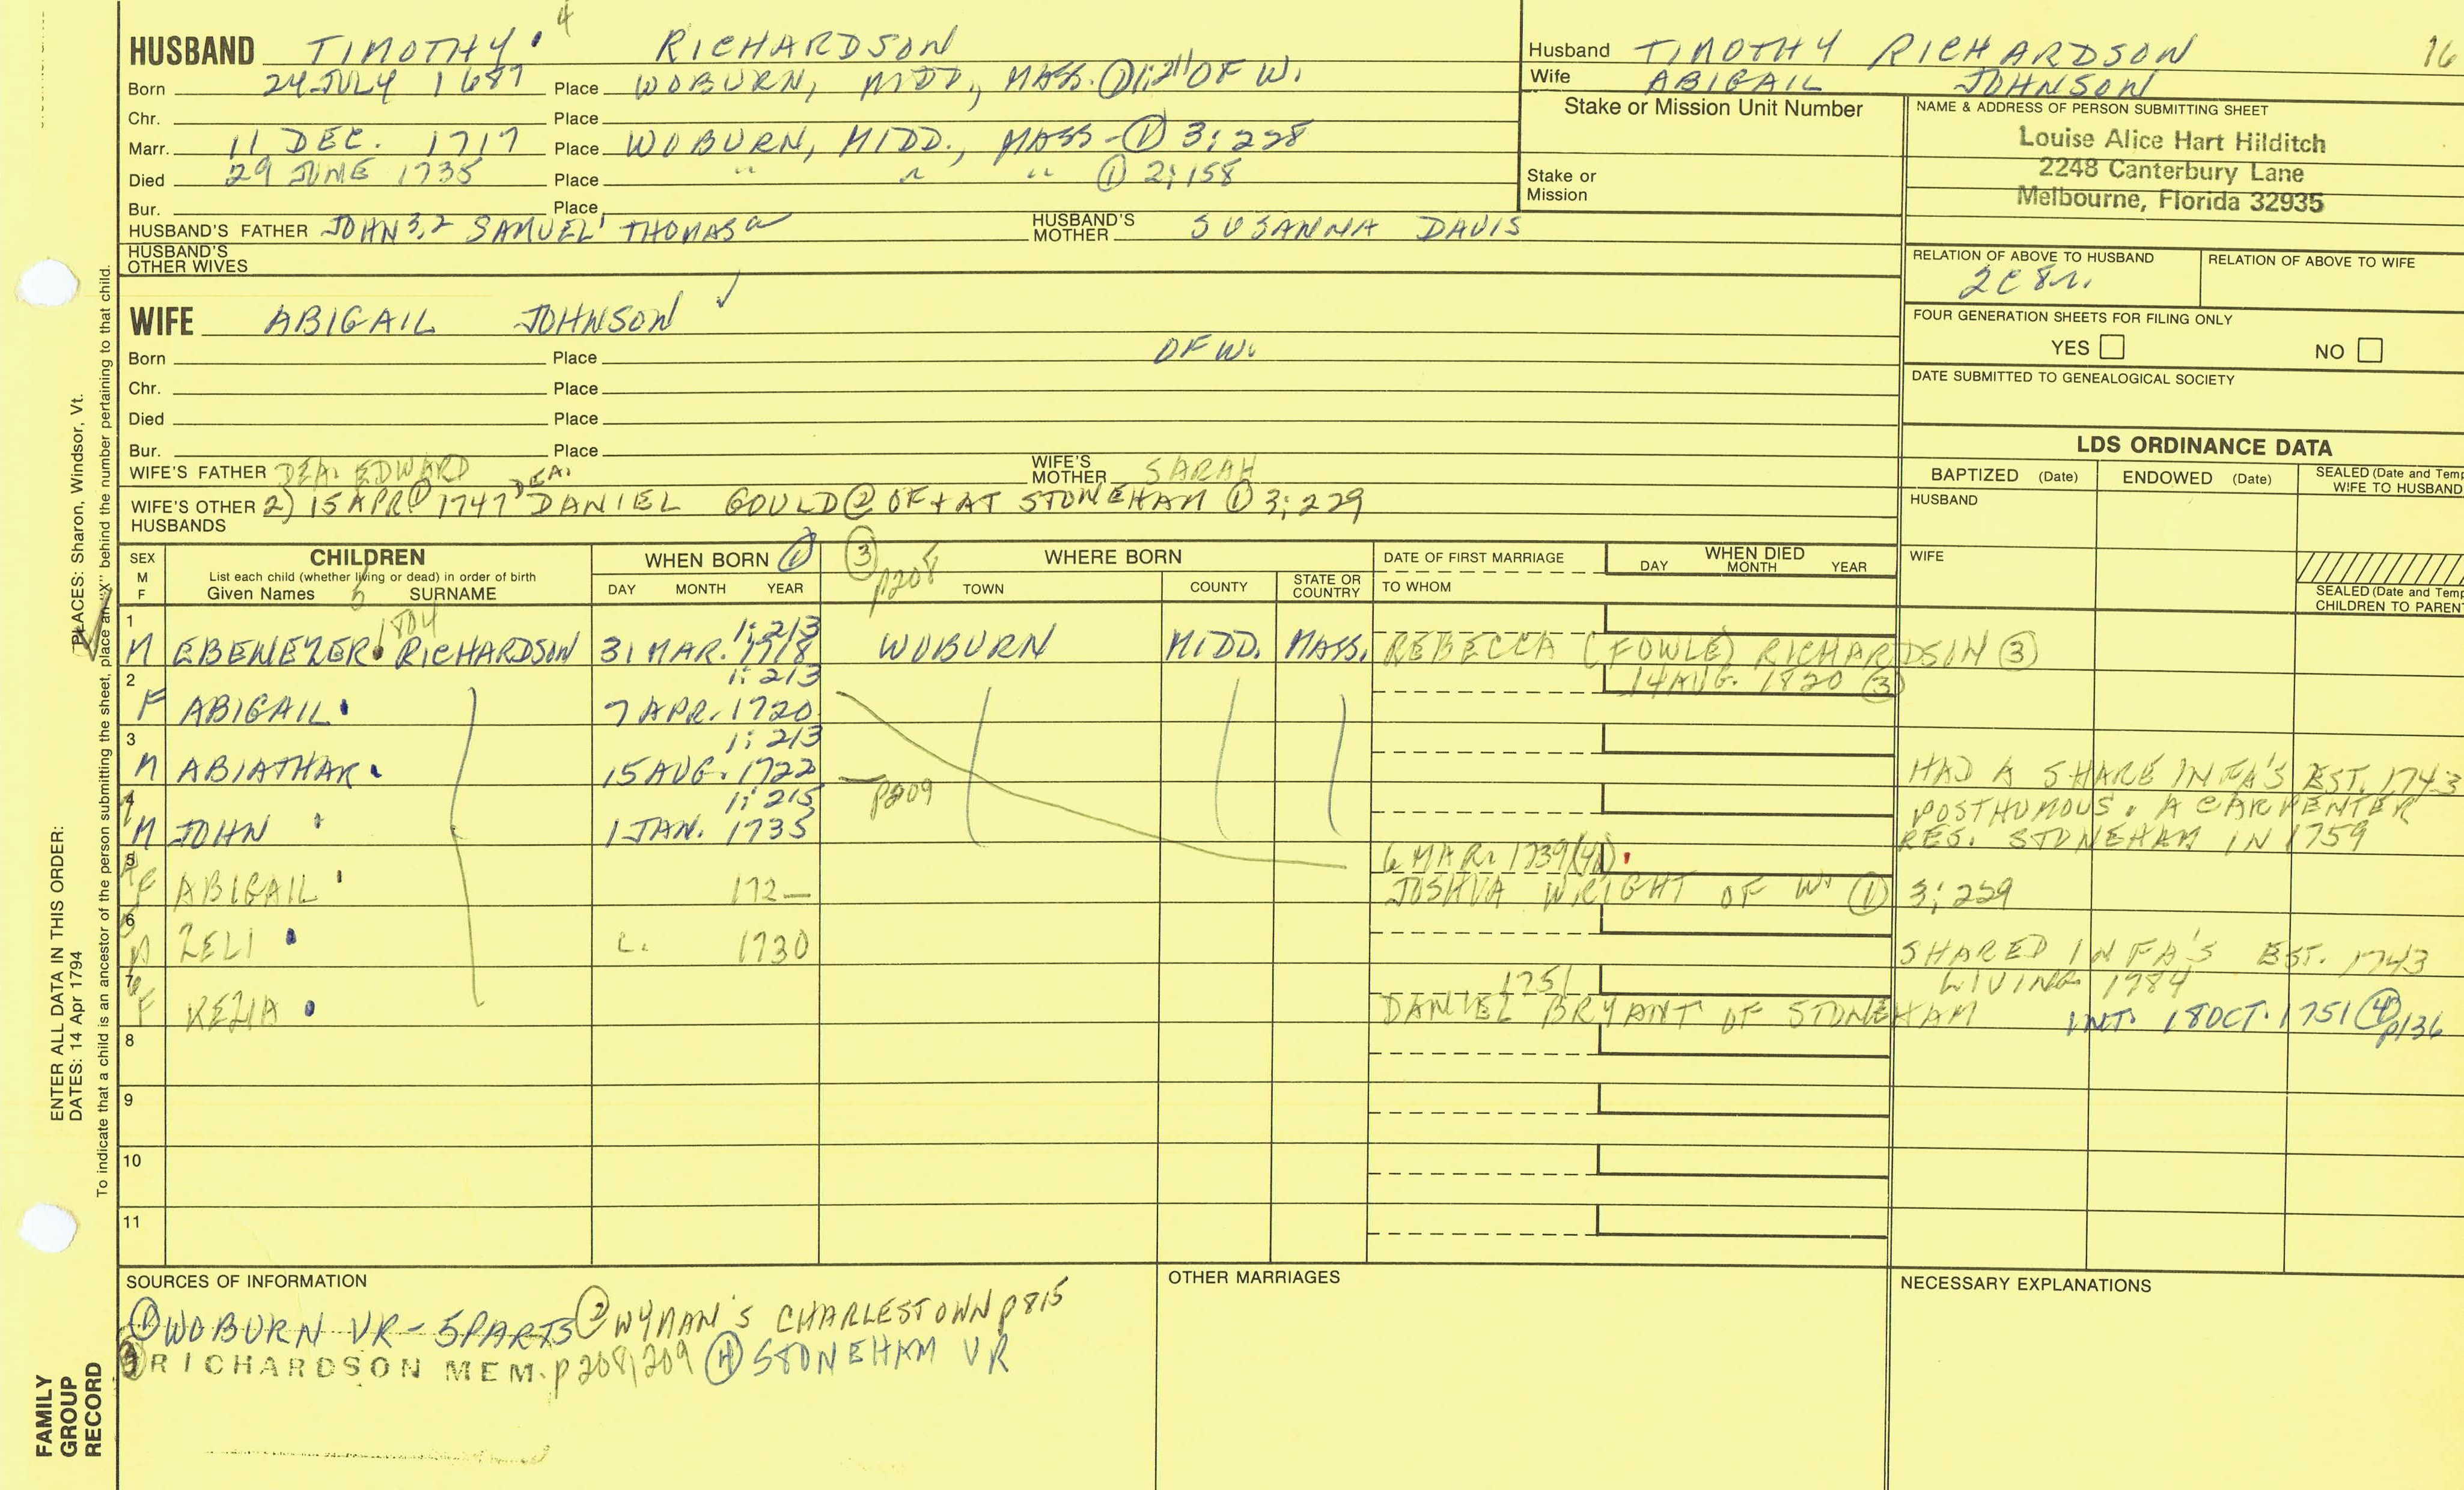 4
HUSBAND TIMOTHY RICHARDSON
Born 24 JULY 1687 Place WOBURN, MIDD., MASS. ① 1:211 OF W.
Chr. Place
Marr. 11 DEC. 1717 Place WOBURN, MIDD., MASS - ① 3:228
Died 29 JUNE 1735 Place " " " ① 2:158
Bur. Place
HUSBAND'S FATHER JOHN 3,2 SAMUEL 1 THOMAS a HUSBAND'S MOTHER SUSANNA DAVIS
HUSBAND'S OTHER WIVES
Husband TIMOTHY RICHARDSON 16
Wife ABIGAIL JOHNSON
Stake or Mission Unit Number
Stake or
Mission
NAME & ADDRESS OF PERSON SUBMITTING SHEET
Louise Alice Hart Hilditch
2248 Canterbury Lane
Melbourne, Florida 32935
RELATION OF ABOVE TO HUSBAND RELATION OF ABOVE TO WIFE
2C8r.
FOUR GENERATION SHEETS FOR FILING ONLY
YES NO
DATE SUBMITTED TO GENEALOGICAL SOCIETY
WIFE ABIGAIL JOHNSON ✓
Born Place OF W.
Chr. Place
Died Place
Bur. Place
WIFE'S FATHER DEA. EDWARD WIFE'S MOTHER SARAH
WIFE'S OTHER HUSBANDS 2) 15 APR ① 1747 DEA. DANIEL GOULD ② OF + AT STONEHAM ① 3:229
LDS ORDINANCE DATA
BAPTIZED (Date) ENDOWED (Date) SEALED (Date and Temp
WIFE TO HUSBAND
HUSBAND
WIFE
SEALED (Date and Temp
CHILDREN TO PAREN
SEX M F CHILDREN WHEN BORN ① ③ p208 WHERE BORN DATE OF FIRST MARRIAGE WHEN DIED
List each child (whether living or dead) in order of birth
Given Names 5 SURNAME DAY MONTH YEAR TOWN COUNTY STATE OR COUNTRY TO WHOM DAY MONTH YEAR
1 1804 1:213
M EBENEZER RICHARDSON 31 MAR. 1718 WOBURN MIDD. MASS. REBECCA (FOWLE) RICHARDSON ③
2 1:213 14 AUG. 1820 ③
F ABIGAIL 7 APR. 1720
3 1:213
M ABIATHAR 15 AUG. 1722 HAD A SHARE IN FA'S EST. 1743
4 1:215 p209 POSTHUMOUS. A CARPENTER
M JOHN 1 JAN. 1735 RES. STONEHAM IN 1759
5 6 MAR. 1739(40)
F ABIGAIL 172— JOSHUA WRIGHT OF W. ① 3:229
6
M ZELI c. 1730 SHARED IN FA'S EST. 1743
7 1751 LIVING 1784
F KEZIA DANIEL BRYANT OF STONEHAM INT. 18 OCT. 1751 ④ p136
8
9
10
11
SOURCES OF INFORMATION
① WOBURN VR - 5 PARTS ② WYMAN'S CHARLESTOWN p815
③ RICHARDSON MEM. p208, 209 ④ STONEHAM VR
OTHER MARRIAGES
NECESSARY EXPLANATIONS
PLACES: Sharon, Windsor, Vt.
ENTER ALL DATA IN THIS ORDER:
DATES: 14 Apr 1794
To indicate that a child is an ancestor of the person submitting the sheet, place an "X" behind the number pertaining to that child.
FAMILY
GROUP
RECORD